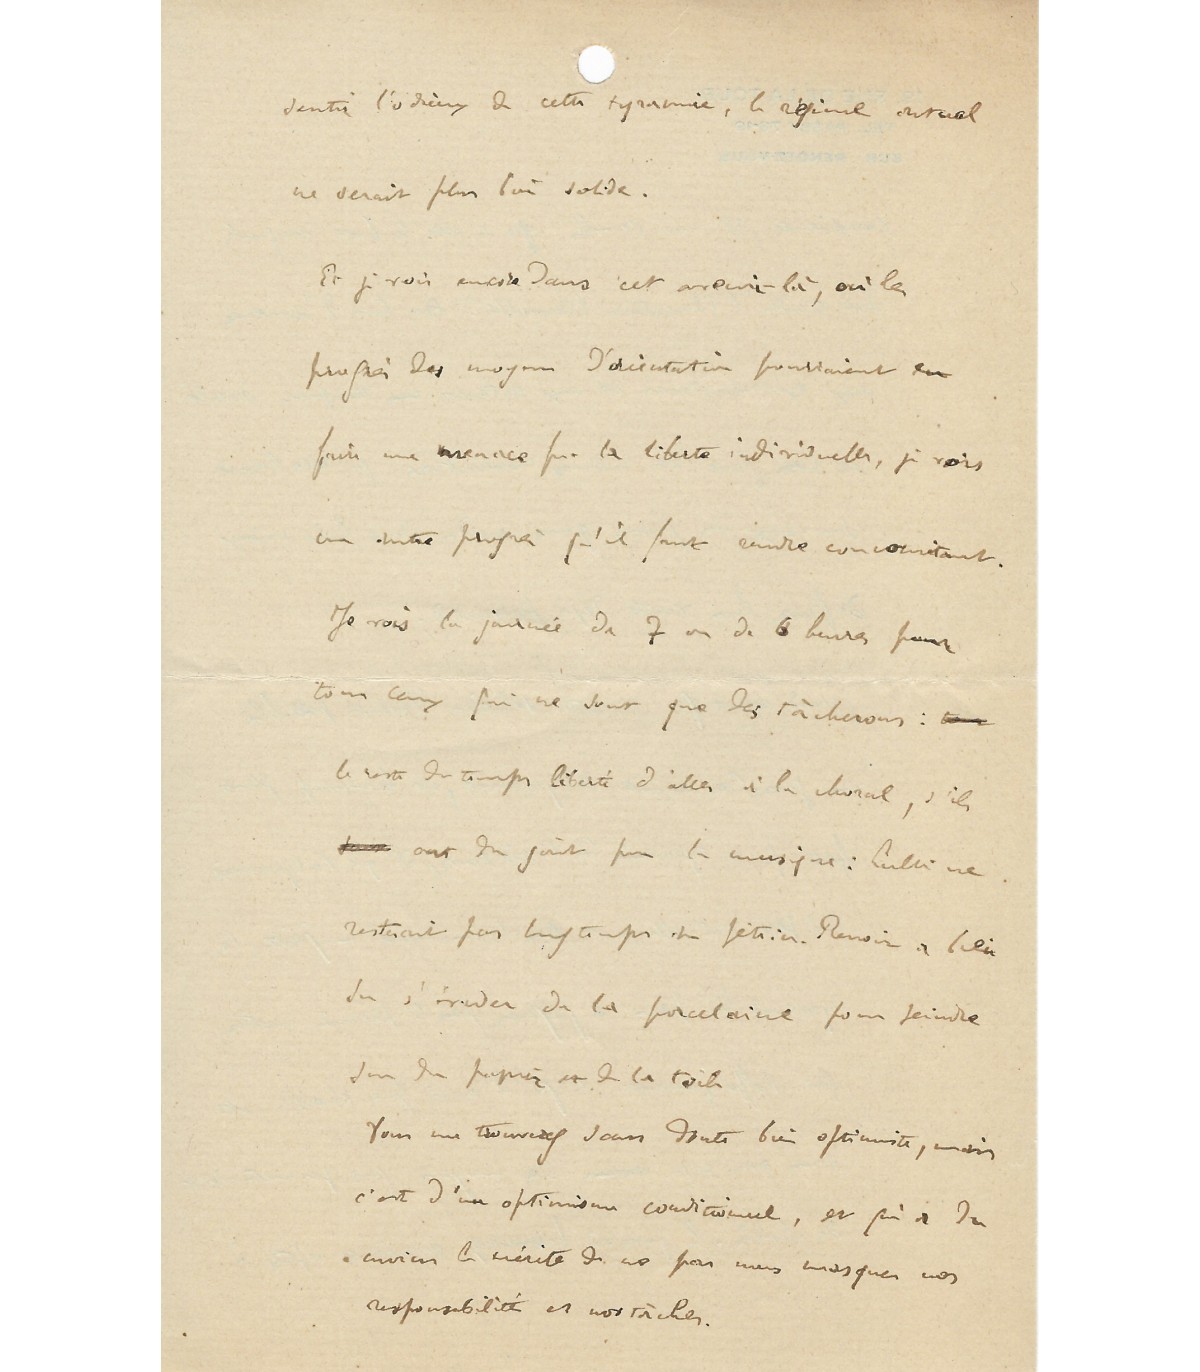 sentir l'odieux de cette tyrannie, le régime actuel
ne serait plus bien solide.
Et je vois encore Dans cet avenir-là, où les
progrès des moyens D'orientation pourraient en
faire une menace pour la liberté individuelle, je vois
un autre progrès qu'il faut rendre concomitant.
Je vois la journée de 7 ou de 6 heures pour
tous ceux qui ne sont que des tâcherons :
le reste du temps liberté d'aller à la choral, s'ils
ont du goût pour la musique : Lulli ne
resterait pas longtemps au pétrin. Renoir a bien
du s'évader de la porcelaine pour peindre
sur du papier et de la toile
Vous me trouverez sans doute bien optimiste, mais
c'est d'un optimisme conditionnel, et qui a du
moins le mérite de ne pas nous masquer nos
responsabilités et nos tâches.